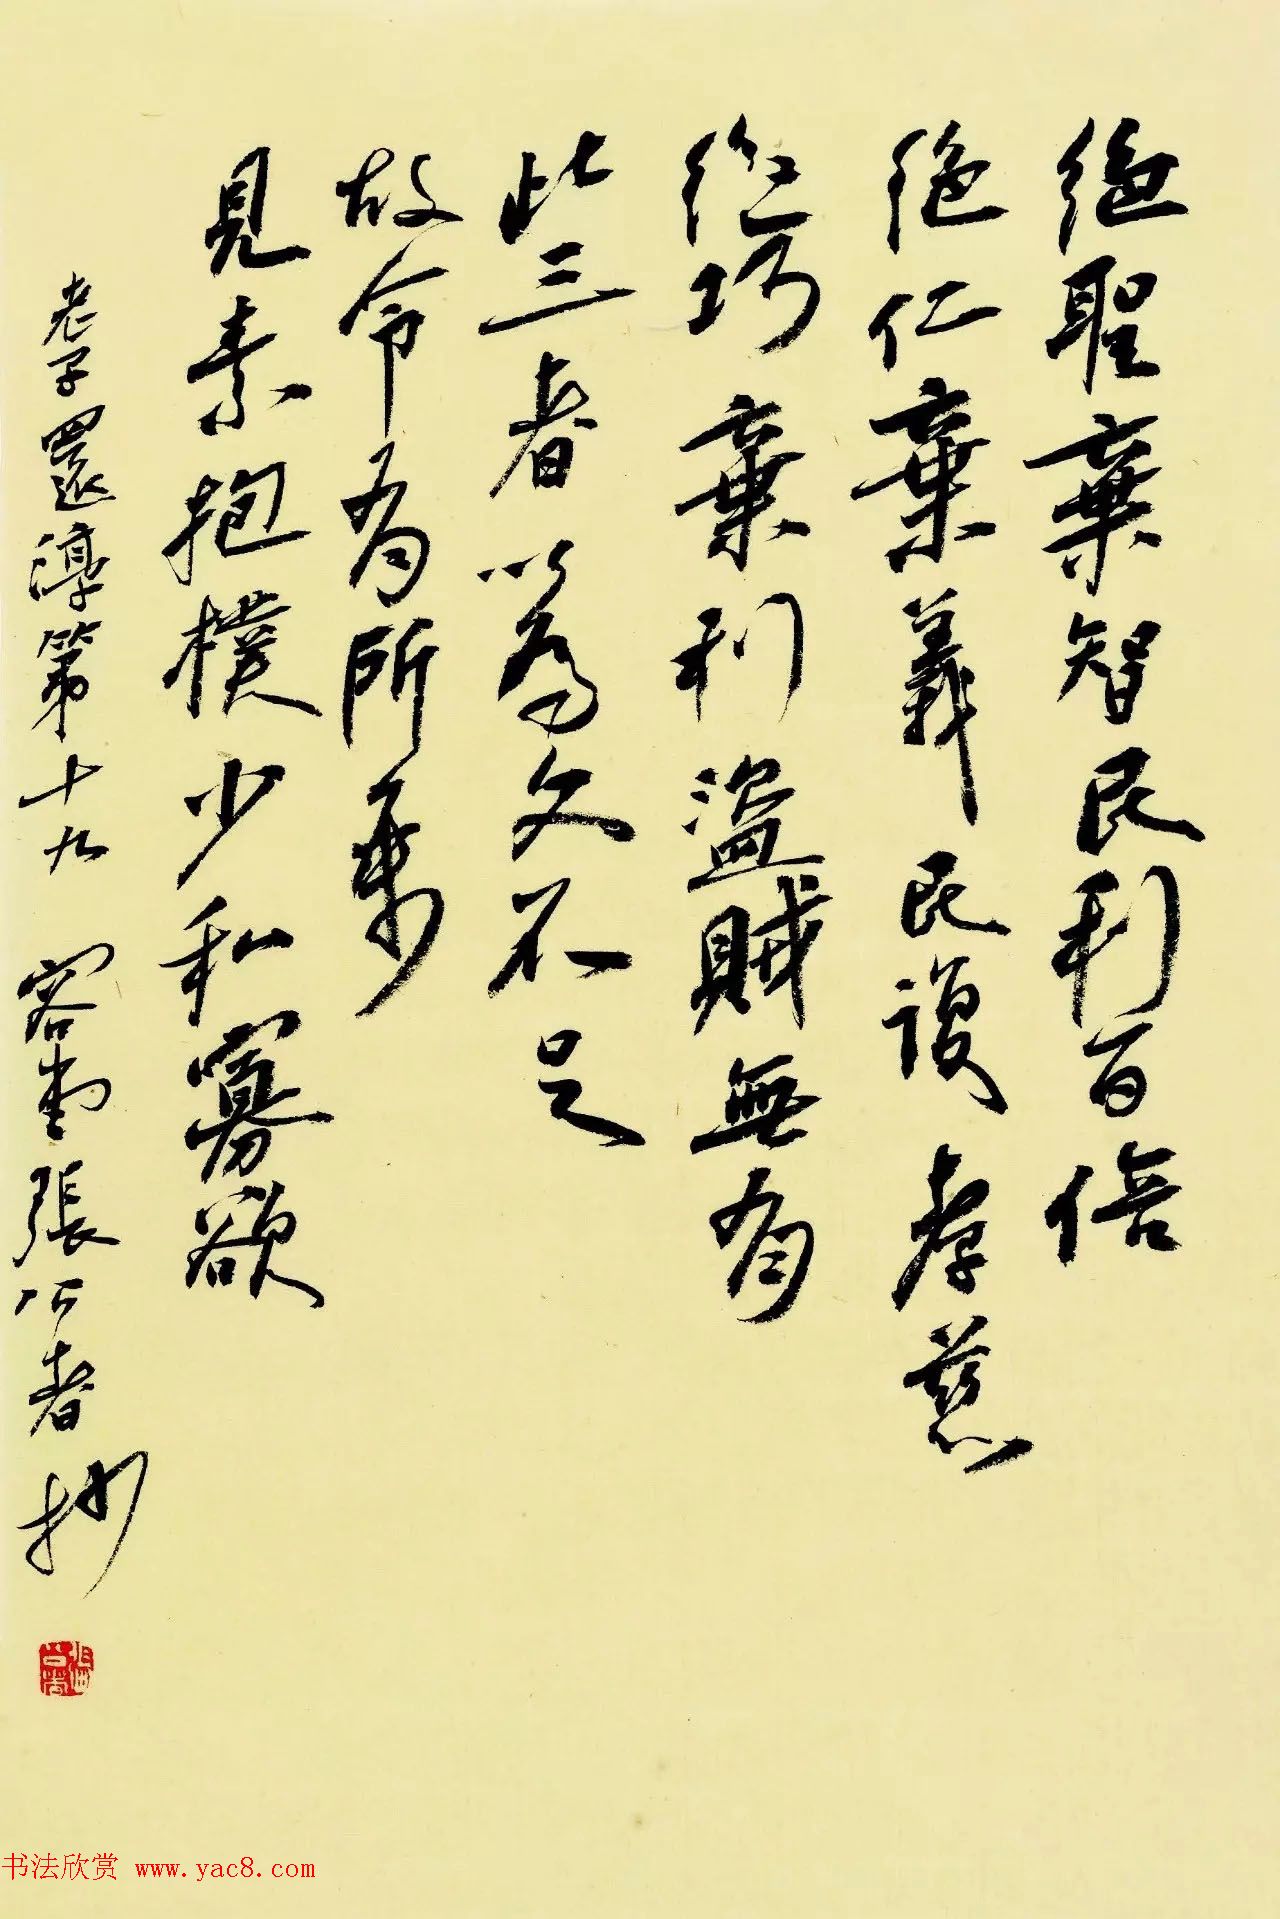 絕聖棄智民利百倍
絕仁棄義民復孝慈
絕巧棄利盜賊無有
此三者以為文不足
故令有所屬
見素抱樸少私寡欲
老子還淳第十九 容堂張公者抄
书法欣赏 www.yac8.com